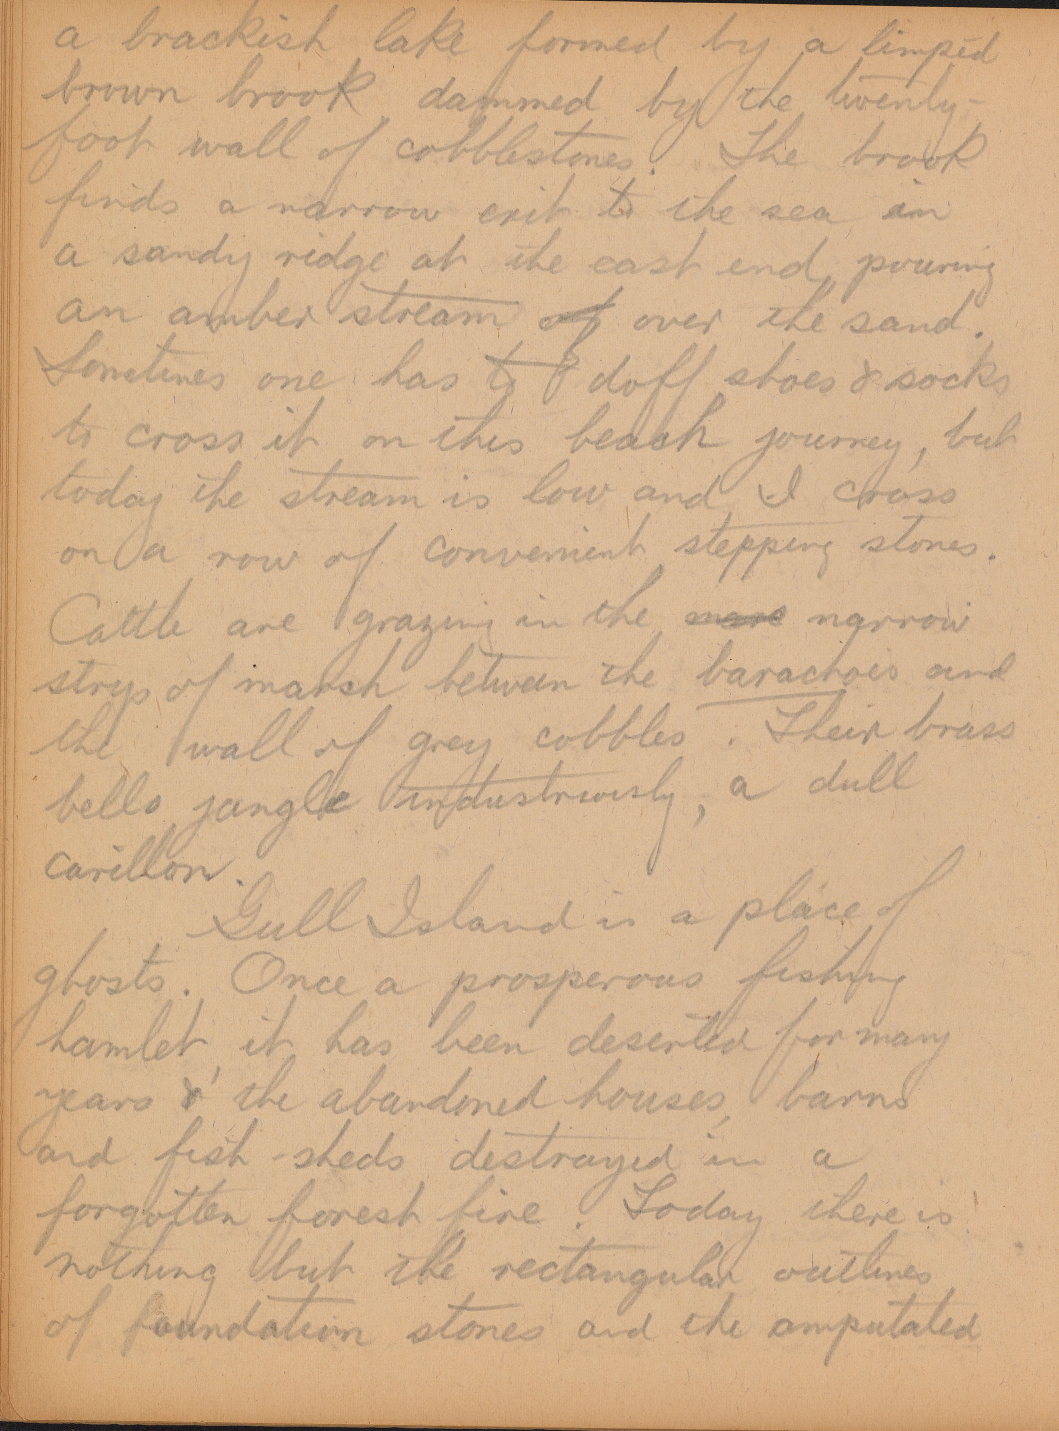 a brackish lake formed by a limpid
brown brook dammed by the twenty-
foot wall of cobblestones. The brook
finds a narrow exit to the sea in
a sandy ridge at the east end, pouring
an amber stream of over the sand.
Sometimes one has to doff shoes & socks
to cross it on this beach journey, but
today the stream is low and I cross
on a row of convenient stepping stones.
Cattle are grazing in the narrow
strip of marsh between the barachois and
the wall of grey cobbles. Their brass
bells jangle industriously, a dull
carillon.
Gull Island is a place of
ghosts. Once a prosperous fishing
hamlet, it has been deserted for many
years & the abandoned houses, barns
and fish-sheds destroyed in a
forgotten forest fire. Today there is
nothing but the rectangular outlines
of foundation stones and the amputated